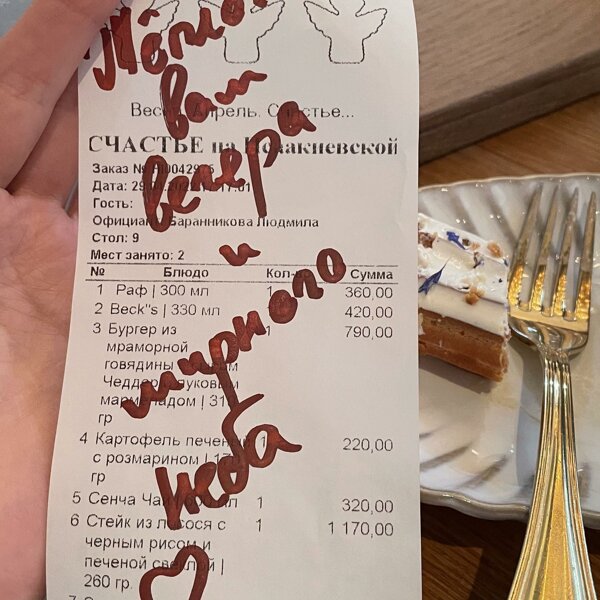 Тёплого
вам
вечера
и
мирного
неба
Весна. Апрель. Счастье...
СЧАСТЬЕ на Исаакиевской
Заказ №
Дата:
Гость:
Официант: Баранникова Людмила
Стол: 9
Мест занято: 2
№ Блюдо Кол-во Сумма
1 Раф | 300 мл 1 360,00
2 Beck"s | 330 мл 420,00
3 Бургер из 1 790,00
мраморной
говядины
Чеддер луковым
мармеладом |
гр
4 Картофель печеный 1 220,00
с розмарином |
гр
5 Сенча Чай мл 1 320,00
6 Стейк из лосося с 1 1 170,00
черным рисом и
печеной свеклой |
260 гр.